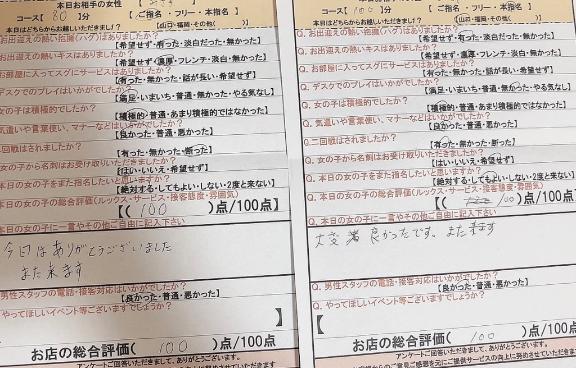 本日お相手の女性
コース【 80 】分
【ご指名・フリー・本指名】
本日はどちらからお越しいただきましたか？
【山口・福岡・その他( )】
Q.お出迎えの熱い抱擁(ハグ)はありましたか？
【希望せず・有った・淡白だった・無かった】
お出迎えの熱いキスはありましたか？
【希望せず・濃厚・フレンチ・淡白・無かった】
お部屋に入ってスグにサービスはありましたか？
【有った・無かった・話が長い・希望せず】
デスクでのプレイはいかがでしたか？
【満足・いまいち・普通・無かった・やる気なし】
女の子は積極的でしたか？
【積極的・普通・あまり積極的ではなかった】
気遣いや言葉使い、マナーなどはいかがでしたか？
【良かった・普通・悪かった】
二回戦はされましたか？
【有った・無かった・断った】
女の子から名刺はお受け取りいただきましたか？
【はい・いいえ・希望せず】
本日の女の子をまた指名したいと思いますか？
【絶対する・してもよい・しない・2度と来ない】
本日の女の子の総合評価(ルックス・サービス・接客態度・雰囲気)
【( 100 )点/100点】
本日の女の子に一言やその他ご自由に記入下さい
今日はありがとうございました
また来ます
男性スタッフの電話・接客対応はいかがでしたか？
【良かった・普通・悪かった】
やってほしいイベント等ございますでしょうか？
お店の総合評価( 100 )点/100点
アンケートご回答いただきまして、ありがとうございます。
コース【 100 】分
【ご指名・フリー・本指名】
本日はどちらからお越しいただきましたか？
【山口・福岡・その他( )】
Q.お出迎えの熱い抱擁(ハグ)はありましたか？
【希望せず・有った・淡白だった・無かった】
Q.お出迎えの熱いキスはありましたか？
【希望せず・濃厚・フレンチ・淡白・無かった】
Q.お部屋に入ってスグにサービスはありましたか？
【有った・無かった・話が長い・希望せず】
Q.デスクでのプレイはいかがでしたか？
【満足・いまいち・普通・無かった・やる気なし】
Q.女の子は積極的でしたか？
【積極的・普通・あまり積極的ではなかった】
Q.気遣いや言葉使い、マナーなどはいかがでしたか？
【良かった・普通・悪かった】
Q.二回戦はされましたか？
【有った・無かった・断った】
Q.女の子から名刺はお受け取りいただきましたか？
【はい・いいえ・希望せず】
Q.本日の女の子をまた指名したいと思いますか？
【絶対する・してもよい・しない・2度と来ない】
Q.本日の女の子の総合評価(ルックス・サービス・接客態度・雰囲気)
【( 100 )点/100点】
Q.本日の女の子に一言やその他ご自由に記入下さい
良かったです。また来ます
Q.男性スタッフの電話・接客対応はいかがでしたか？
【良かった・普通・悪かった】
Q.やってほしいイベント等ございますでしょうか？
お店の総合評価( 100 )点/100点
アンケートご回答いただきまして、ありがとうございます。